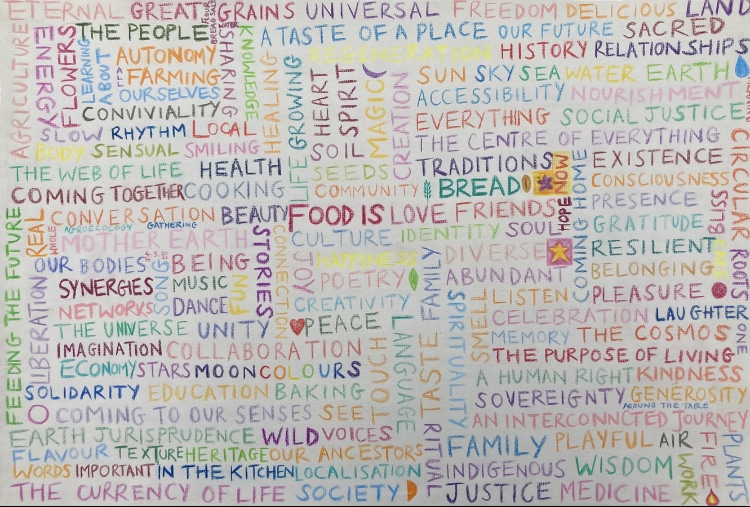 ETERNAL GREAT GRAINS UNIVERSAL FREEDOM DELICIOUS LAND
AGRICULTURE
ENERGY
FLOWERS
THE PEOPLE
SHARING
KNOWLEDGE
A TASTE OF A PLACE OUR FUTURE SACRED
LEARNING
ABOUT
AUTONOMY
FARMING
OURSELVES
HEALING
GROWING
REGENERATION HISTORY RELATIONSHIPS
HEART
SPIRIT
MAGIC
CREATION
SUN SKY SEA WATER EARTH
ACCESSIBILITY NOURISHMENT
CONVIVIALITY
EVERYTHING SOCIAL JUSTICE
SLOW RHYTHM LOCAL
THE CENTRE OF EVERYTHING
CIRCULAR
BODY SENSUAL SMILING
SOIL
LIFE
THE WEB OF LIFE HEALTH
SEEDS
TRADITIONS
MON
COMING HOME
EXISTENCE
COMING TOGETHER COOKING
COMMUNITY
BREAD
CONSCIOUSNESS
FEEDING THE FUTURE
REAL
WHOLE
CONVERSATION BEAUTY
FOOD IS LOVE FRIENDS
HOPE
PRESENCE
BLISS
AGROECOLOGY GATHERING
MOTHER EARTH
STORIES
CONNECTION
CULTURE IDENTITY SOUL
GRATITUDE
OUR BODIES
SONG
BEING
JOY
HAPPINESS
FAMILY
DIVERSE
RESILIENT
ROOTS
LIBERATION
SYNERGIES
MUSIC
FUN
POETRY
ABUNDANT
BELONGING
NETWORKS
DANCE
CREATIVITY
SPIRITUALITY
SMELL
LISTEN
PLEASURE
THE UNIVERSE UNITY
PEACE
LANGUAGE
TASTE
CELEBRATION LAUGHTER
ONE
IMAGINATION COLLABORATION
TOUCH
MEMORY THE COSMOS
ECONOMY STARS MOON COLOURS
THE PURPOSE OF LIVING
SOLIDARITY EDUCATION BAKING
A HUMAN RIGHT KINDNESS
COMING TO OUR SENSES SEE
SOVEREIGNTY GENEROSITY
AROUND THE TABLE
EARTH JURISPRUDENCE WILD VOICES
RITUAL
AN INTERCONNCTED JOURNEY
FLAVOUR TEXTURE HERITAGE OUR ANCESTORS
FAMILY PLAYFUL AIR
FIRE
PLANTS
WORDS IMPORTANT IN THE KITCHEN LOCALISATION
INDIGENOUS WISDOM
WORK
THE CURRENCY OF LIFE SOCIETY
JUSTICE MEDICINE